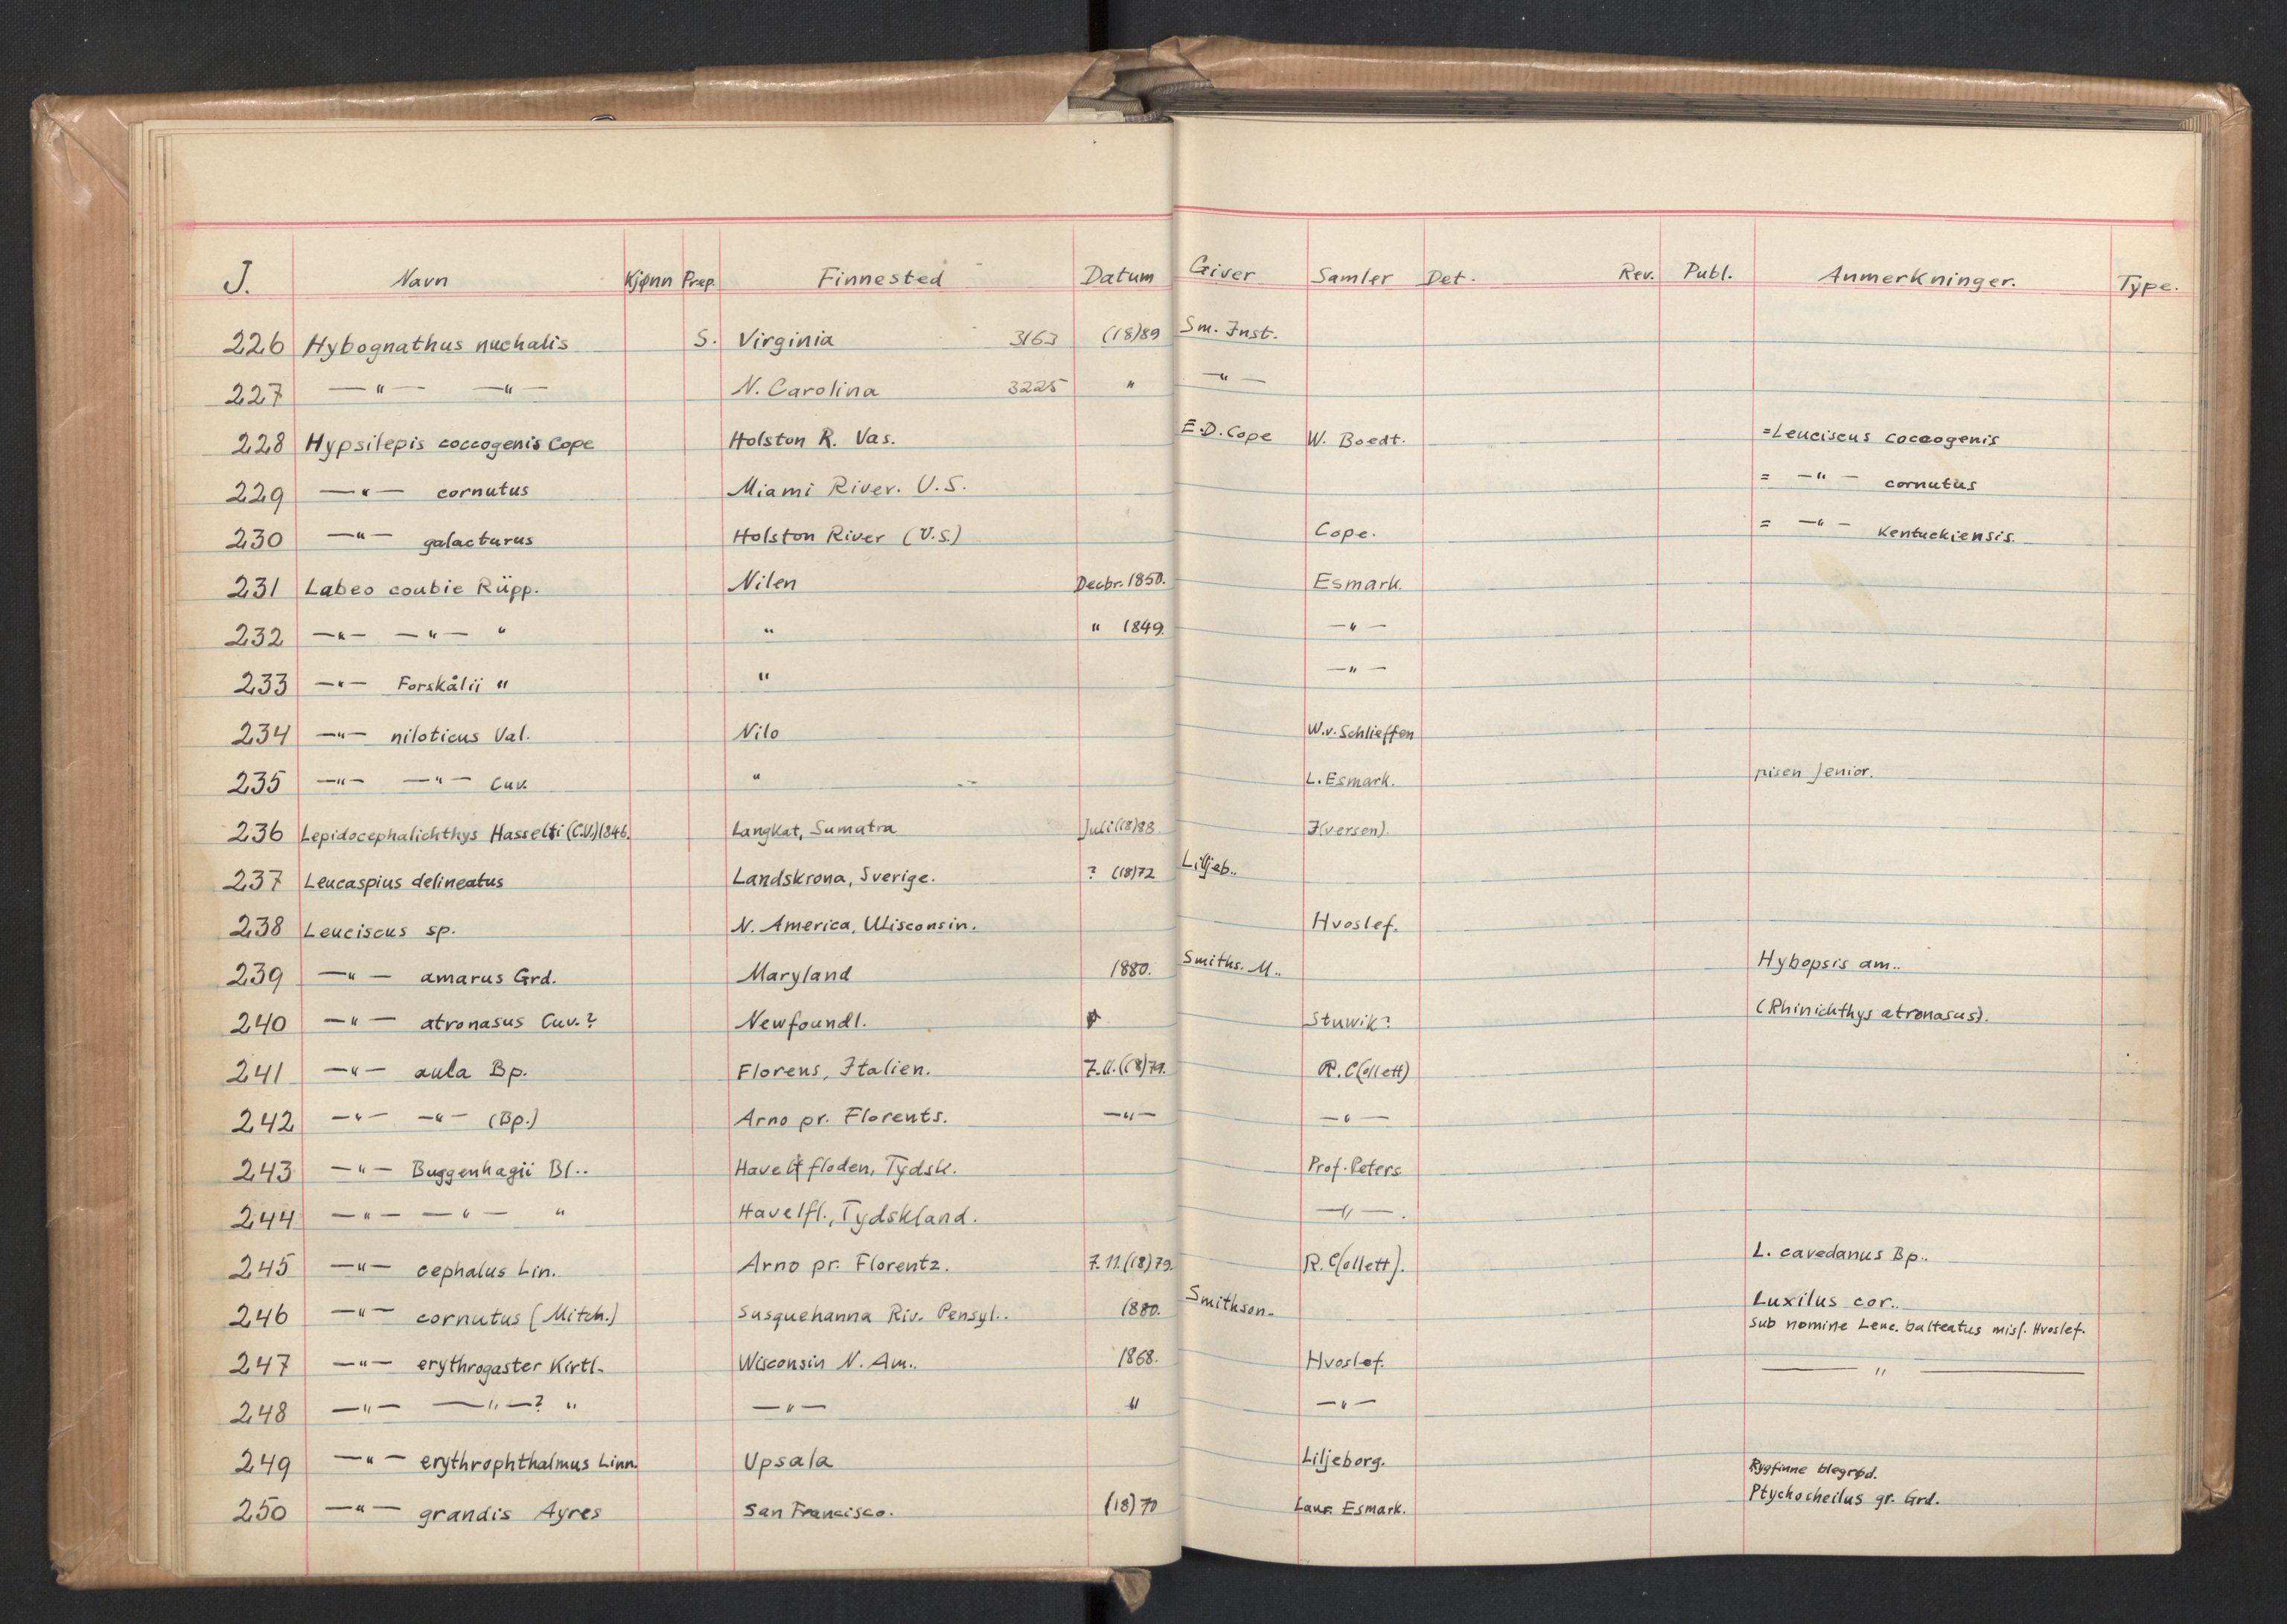 J. Navn Kjønn Prep. Finnested Datum Giver Samler Det. Rev. Publ. Anmerkninger. Type.
226 Hybognathus nuchalis S. Virginia 3163 (18)89 Sm. Inst.
227 —"— —"— N. Carolina 3225 " —"—
228 Hypsilepis coccogenis Cope Holston R. Vas. E.D. Cope W. Boedt. =Leuciscus coccogenis
229 —"— cornutus Miami River. U.S. = —"— cornutus
230 —"— galacturus Holston River (U.S.) Cope. = —"— Kentuckiensis.
231 Labeo coubie Rüpp. Nilen Decbr. 1850. Esmark.
232 —"— —"— " " " 1849. —"—
233 —"— Forskålii " " —"—
234 —"— niloticus Val. Nilo W.v. Schlieffen
235 —"— —"— Cuv. " L. Esmark. nisen Senior.
236 Lepidocephalichthys Hasselti (C.V.) 1846. Langkat, Sumatra Juli (18)88. I(versen).
237 Leucaspius delineatus Landskrona, Sverige. ? (18)72 Liljeb..
238 Leuciscus sp. N. America, Wisconsin. Hvoslef.
239 —"— amarus Grd. Maryland 1880. Smiths. M.. Hybopsis am..
240 —"— atronasus Cuv.? Newfoundl. Stuwik? (Rhinichthys atronasus).
241 —"— aula Bp. Florens, Italien. 7.11.(18)79. R. C(ollett)
242 —"— —"— (Bp.) Arno pr. Florents. —"— —"—
243 —"— Buggenhagii Bl.. Havelfloden, Tydsk. Prof. Peters
244 —"— —"— " Havelfl., Tydskland. —"—.
245 —"— cephalus Lin. Arno pr. Florentz. 7.11.(18)79. R. C(ollett). L. cavedanus Bp..
246 —"— cornutus (Mitch.) Susquehanna Riv. Pensyl.. 1880. Smithson. Luxilus cor..
sub nomine Leuc. balteatus misf. Hvoslef.
247 —"— erythrogaster Kirtl. Wisconsin N. Am.. 1868. Hvoslef. —"—
248 —"— —"—? " —"— " —"—
249 —"— erythrophthalmus Linn. Upsala Liljeborg. Rygfinne blegrød.
250 —"— grandis Ayres San Francisco. (18)70 Laur. Esmark. Ptychocheilus gr. Grd.